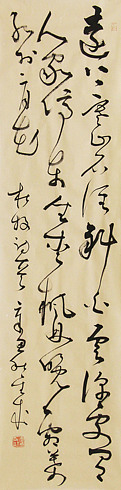 遠上寒山石徑斜白雲深處有
人家停車坐愛楓林晚霜葉
紅於二月花 杜牧詩